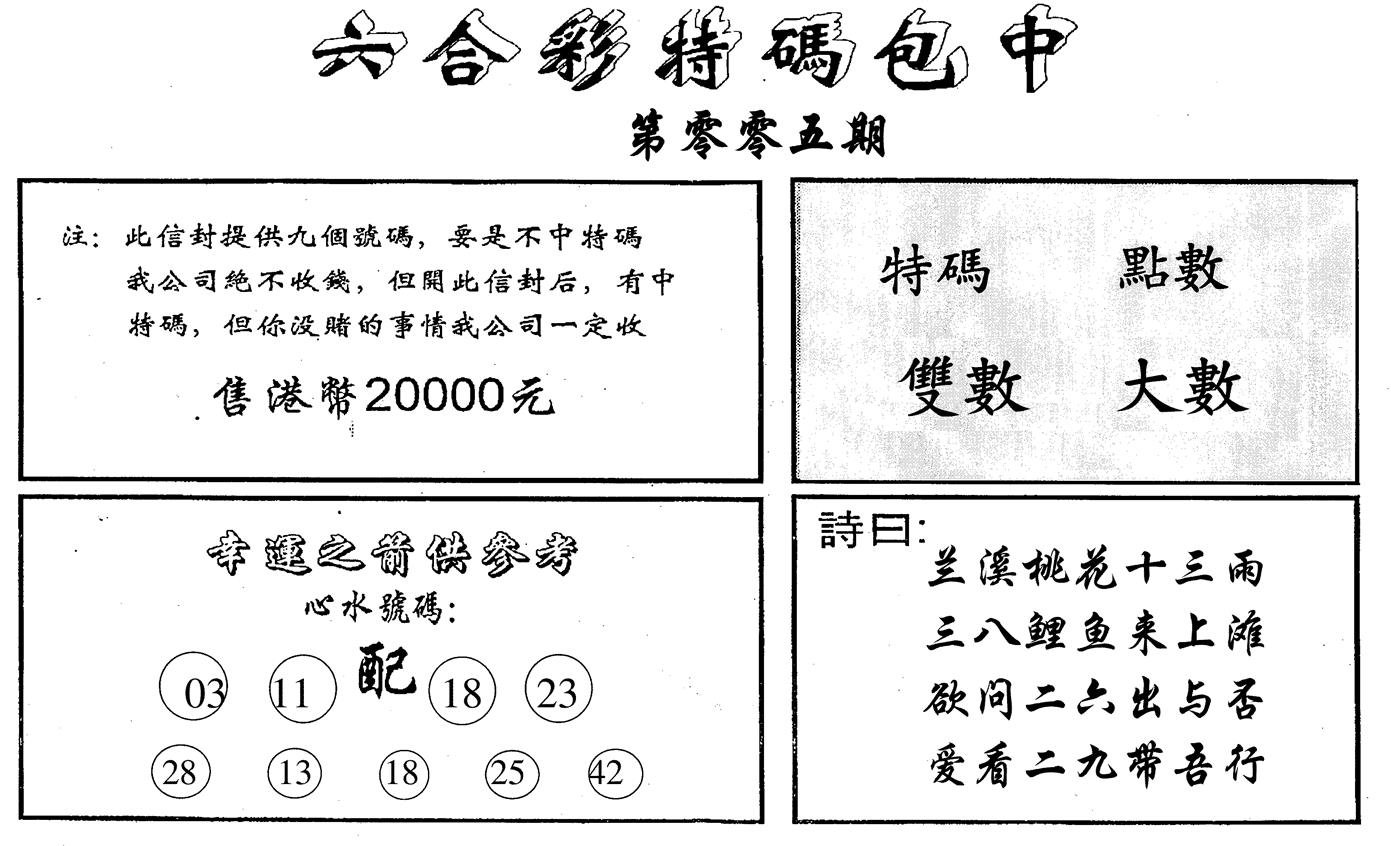 六合彩特碼包中
第零零五期
注：此信封提供九個號碼，要是不中特碼
我公司絕不收錢，但開此信封后，有中
特碼，但你没賭的事情我公司一定收
售港幣20000元
特碼 點數
雙數 大數
幸運之箭供參考
心水號碼：
03 11 配 18 23
28 13 18 25 42
詩曰：
兰溪桃花十三雨
三八鲤鱼来上滩
欲问二六出与否
爱看二九带吾行